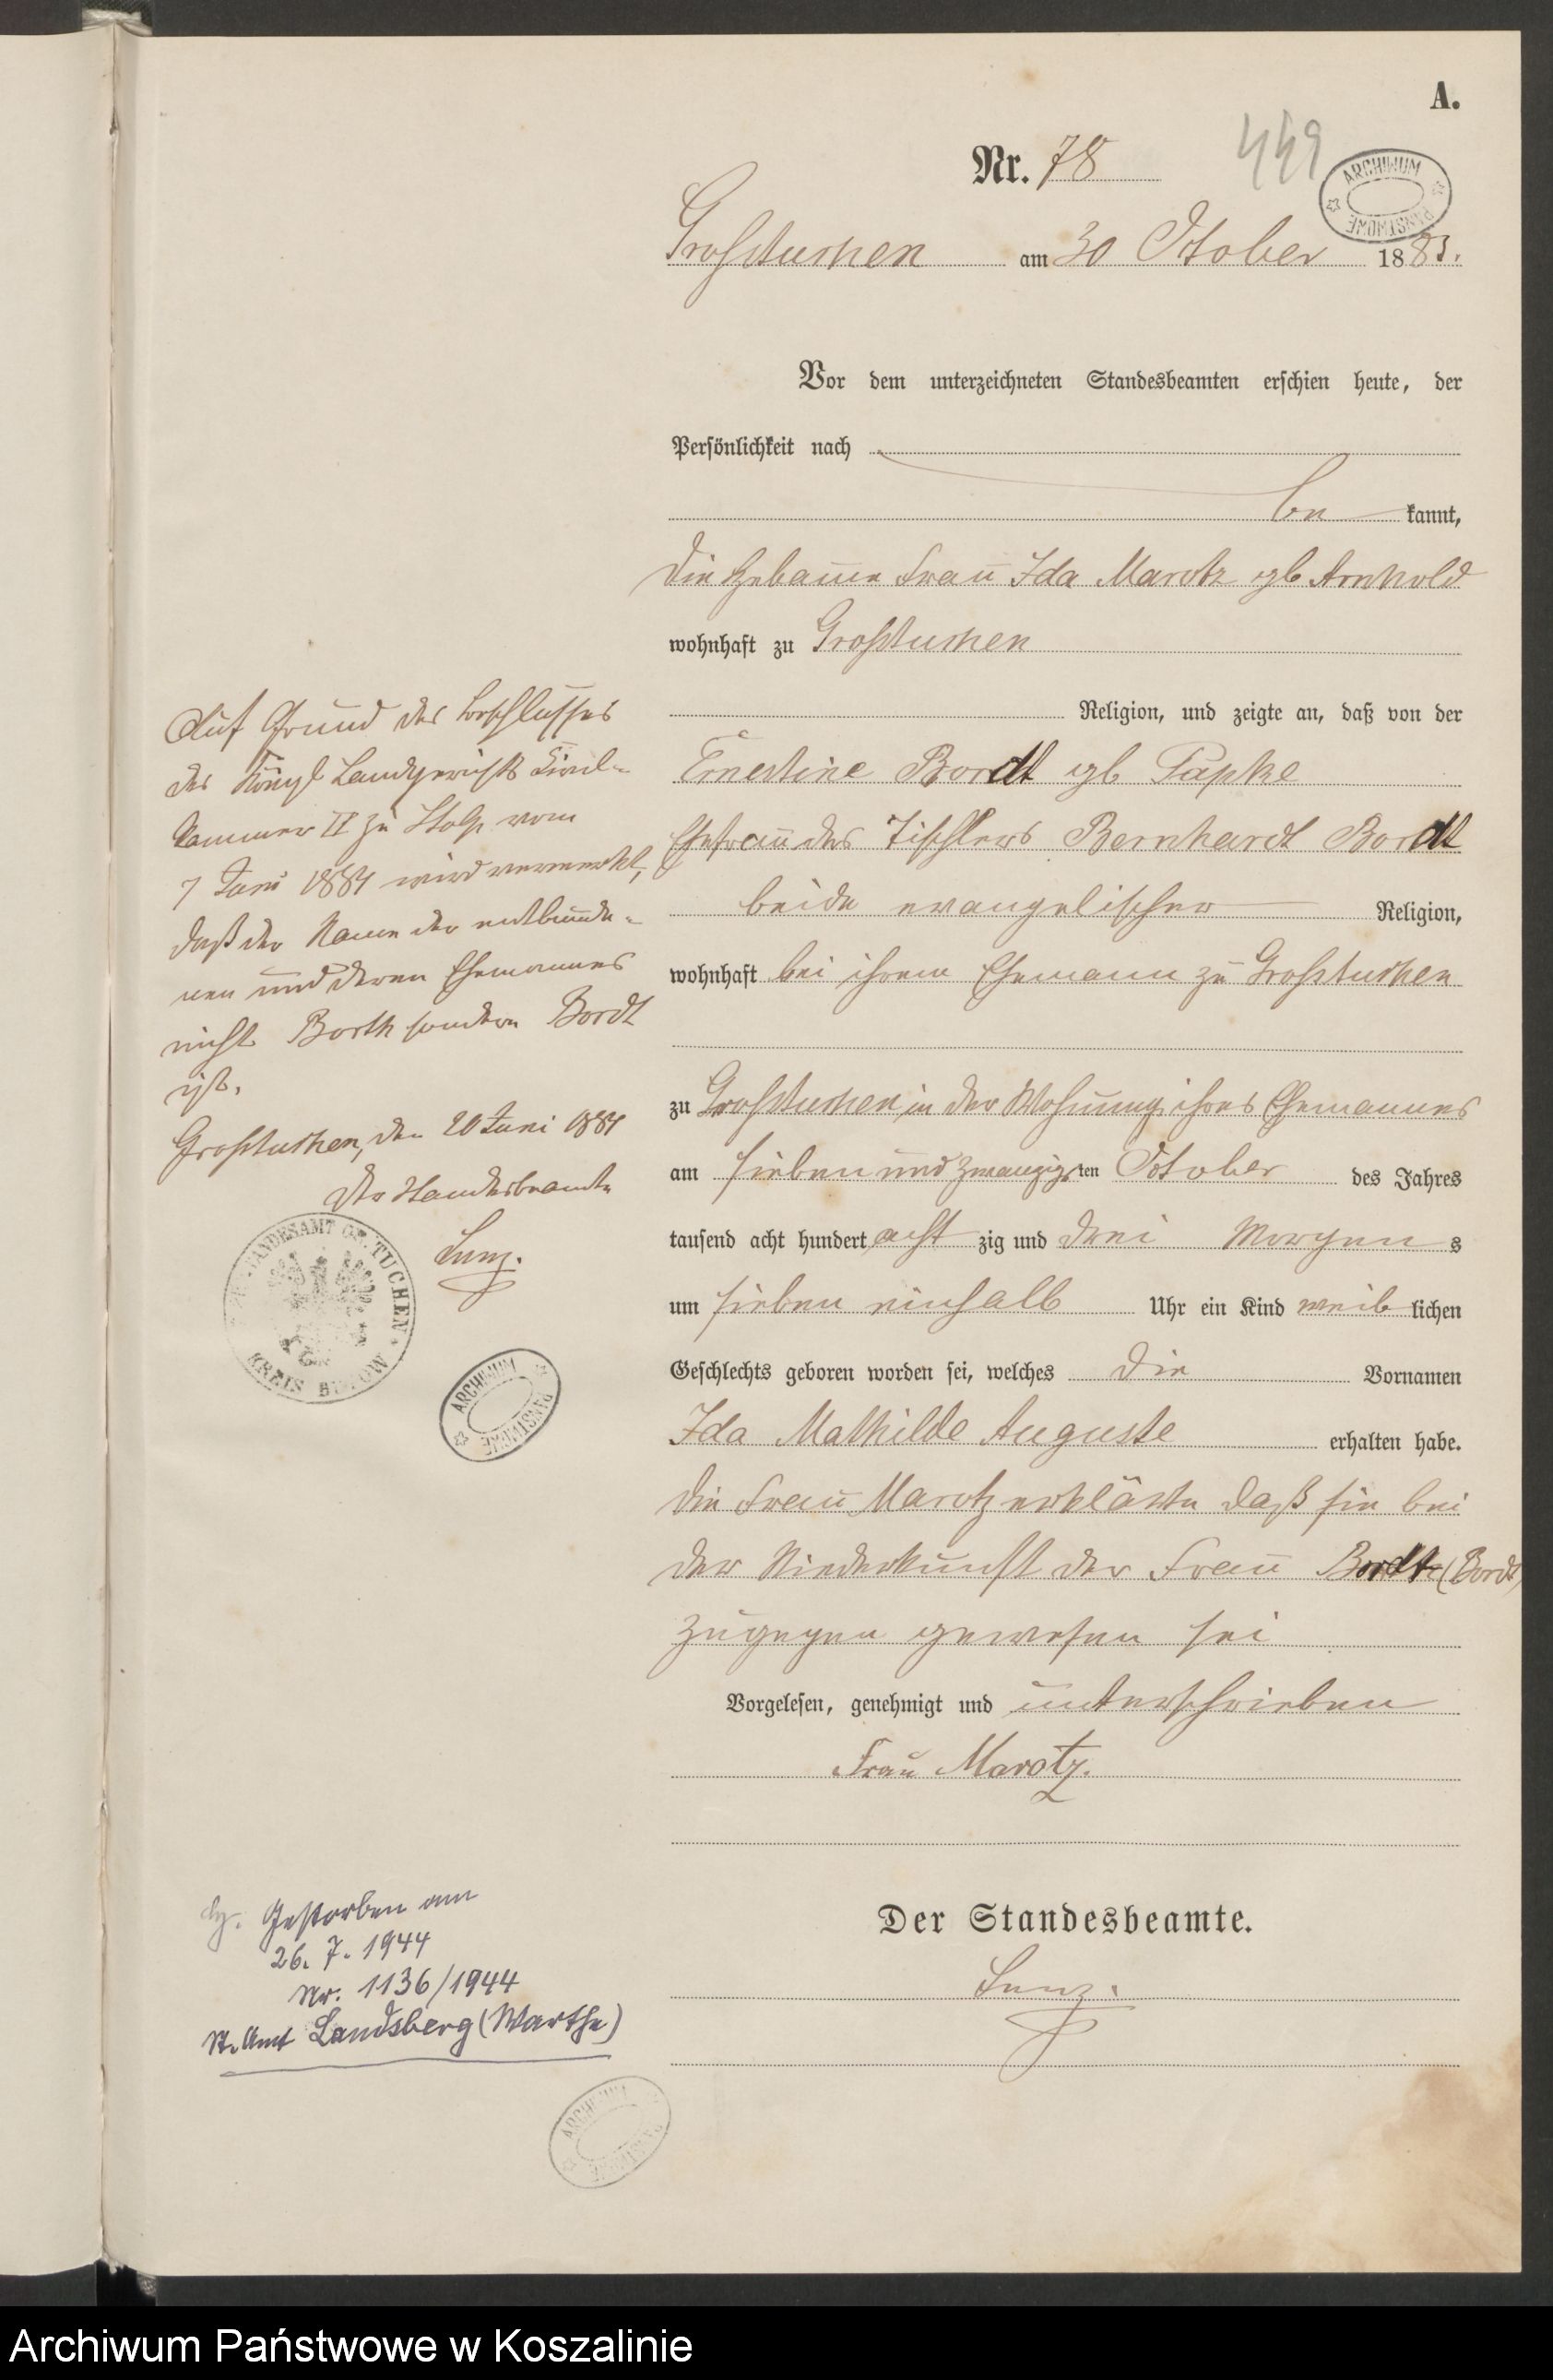 A.
Nr. 78
449
ARCHIWUM PAŃSTWOWE
Großtuchen am 30 October 1883.
Vor dem unterzeichneten Standesbeamten erschien heute, der
Persönlichkeit nach
be kannt,
die Hebamme Frau Ida Marotz geb Arnhold
wohnhaft zu Großtuchen
Religion, und zeigte an, daß von der
Ernestine Bordt geb Papke
Ehefrau des Tischlers Bernhardt Bordt
beide evangelischer Religion,
wohnhaft bei ihrem Ehemann zu Großtuchen
zu Großtuchen in der Wohnung ihres Ehemannes
am sieben und zwanzigsten October des Jahres
tausend acht hundert acht zig und drei Morgens
um sieben einhalb Uhr ein Kind weib lichen
Geschlechts geboren worden sei, welches die Vornamen
Ida Mathilde Auguste erhalten habe.
Die Frau Marotz erklärte daß sie bei
der Niederkunft der Frau Bordt (Bordt)
zugegen gewesen sei
Vorgelesen, genehmigt und unterschrieben
Frau Marotz.
Der Standesbeamte.
Lunz.
Auf Grund des Beschlusses
des Königl Landgerichts Civil-
kammer II zu Stolp vom
7 Juni 1884 wird vermerkt,
daß der Name der entbunde-
nen und deren Ehemannes
nicht Borth sondern Bordt
ist.
Großtuchen, den 20 Juni 1884
Der Standesbeamte
Lunz.
STANDESAMT GR. TUCHEN
KREIS BÜTOW
ARCHIWUM PAŃSTWOWE
Gestorben am
26. 7. 1944
Nr. 1136/1944
St. Amt Landsberg (Warthe)
ARCHIWUM PAŃSTWOWE
Archiwum Państwowe w Koszalinie